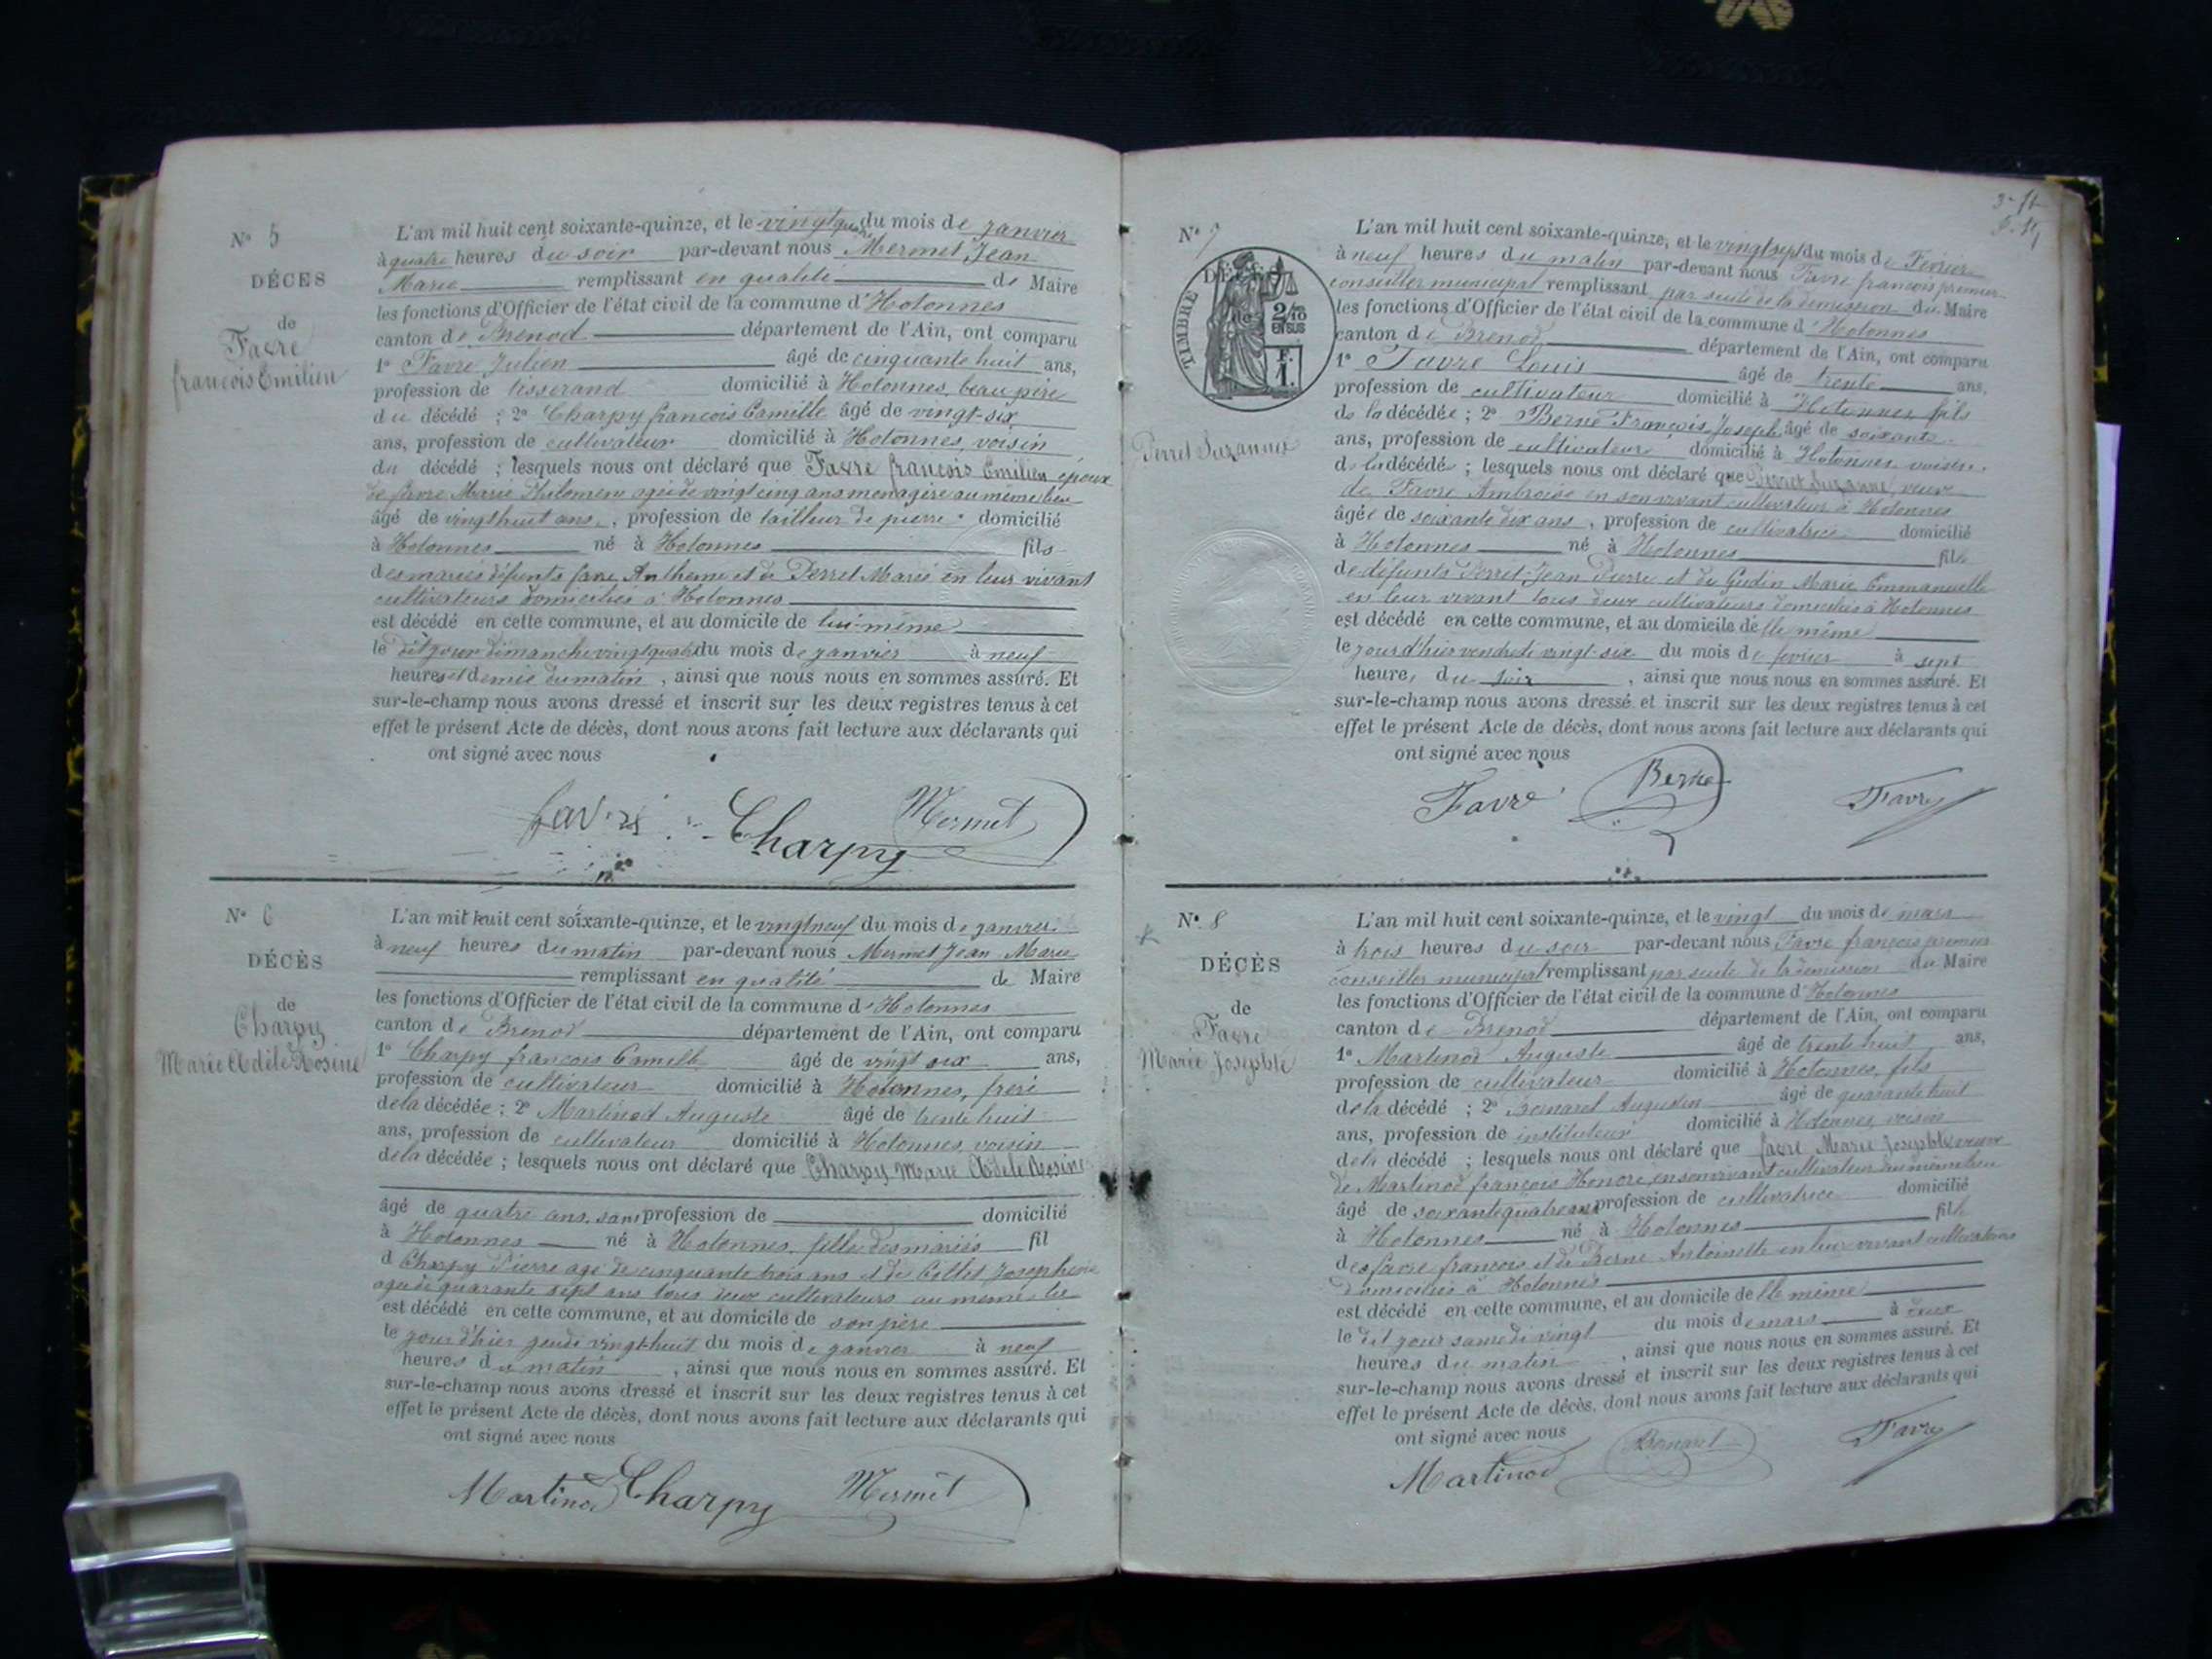 N° 5
DÉCÈS
de
Favre
françois Emilien
L'an mil huit cent soixante-quinze, et le vingtquatre du mois de janvier
à quatre heures du soir par-devant nous Mermet Jean
Marie remplissant en qualité de Maire
les fonctions d'Officier de l'état civil de la commune d'Hotonnes
canton de Brenod département de l'Ain, ont comparu
1° Favre Julien âgé de cinquante huit ans,
profession de tisserand domicilié à Hotonnes, beau père
du décédé ; 2° Charpy françois Camille âgé de vingt-six
ans, profession de cultivateur domicilié à Hotonnes, voisin
du décédé ; lesquels nous ont déclaré que Favre françois Emilien époux
de favre Marie Philomene agée de vingt cinq ans menagère au même lieu
âgé de vingthuit ans, profession de tailleur de pierre domicilié
à Hotonnes né à Hotonnes fils
des mariés défunts favre Antheme et de Perret Marie en leur vivant
cultivateurs domiciliés à Hotonnes
est décédé en cette commune, et au domicile de lui-même
le dit jour dimanche vingtquatre du mois de janvier à neuf
heures et demie du matin, ainsi que nous nous en sommes assuré. Et
sur-le-champ nous avons dressé et inscrit sur les deux registres tenus à cet
effet le présent Acte de décès, dont nous avons fait lecture aux déclarants qui
ont signé avec nous
favre Charpy Mermet
N° 6
DÉCÈS
de
Charpy
Marie Adèle Rosine
L'an mil huit cent soixante-quinze, et le vingtneuf du mois de janvier
à neuf heures du matin par-devant nous Mermet Jean Marie
remplissant en qualité de Maire
les fonctions d'Officier de l'état civil de la commune d'Hotonnes
canton de Brenod département de l'Ain, ont comparu
1° Charpy françois Camille âgé de vingt six ans,
profession de cultivateur domicilié à Hotonnes, frère
de la décédée ; 2° Martinod Auguste âgé de trente huit
ans, profession de cultivateur domicilié à Hotonnes, voisin
de la décédée ; lesquels nous ont déclaré que Charpy Marie Adele Rosine
âgé de quatre ans, sans profession de domicilié
à Hotonnes né à Hotonnes, fille des mariés fil
d Charpy Pierre agé de cinquante trois ans et de Collet Josephine
agée de quarante sept ans tous deux cultivateurs au même lieu
est décédé en cette commune, et au domicile de son père
le jour d'hier jeudi vingt-huit du mois de janvier à neuf
heures du matin, ainsi que nous nous en sommes assuré. Et
sur-le-champ nous avons dressé et inscrit sur les deux registres tenus à cet
effet le présent Acte de décès, dont nous avons fait lecture aux déclarants qui
ont signé avec nous
Martinod Charpy Mermet
N° 7
DÉCÈS
de
TIMBRE
2/10
EN SUS
F.
1.
Perret Suzanne
L'an mil huit cent soixante-quinze, et le vingtsept du mois de Fevrier
à neuf heures du matin par-devant nous Favre françois premier
conseiller municipal remplissant par suite de la demission du Maire
les fonctions d'Officier de l'état civil de la commune d'Hotonnes
canton de Brenod département de l'Ain, ont comparu
1° Favre Louis âgé de trente ans,
profession de cultivateur domicilié à Hotonnes fils
de la décédée ; 2° Berne François Joseph âgé de soixante
ans, profession de cultivateur domicilié à Hotonnes, voisin
de la décédée ; lesquels nous ont déclaré que Perret Suzanne, veuve
de Favre Ambroise en son vivant cultivateur à Hotonnes
âgée de soixante dix ans, profession de cultivatrice domicilié
à Hotonnes né à Hotonnes fille
de défunts Perret Jean Pierre et de Gudin Marie Emmanuelle
en leur vivant tous deux cultivateurs domiciliés à Hotonnes
est décédé en cette commune, et au domicile d'elle même
le jour d'hier vendredi vingt-six du mois de fevrier à sept
heures du soir, ainsi que nous nous en sommes assuré. Et
sur-le-champ nous avons dressé et inscrit sur les deux registres tenus à cet
effet le présent Acte de décès, dont nous avons fait lecture aux déclarants qui
ont signé avec nous
Favre Berne Favre
N° 8
DÉCÈS
de
Favre
Marie Josephte
L'an mil huit cent soixante-quinze, et le vingt du mois de mars
à trois heures du soir par-devant nous Favre françois premier
conseiller municipal remplissant par suite de la demission du Maire
les fonctions d'Officier de l'état civil de la commune d'Hotonnes
canton de Brenod département de l'Ain, ont comparu
1° Martinod Auguste âgé de trente huit ans,
profession de cultivateur domicilié à Hotonnes, fils
de la décédé ; 2° Augustin âgé de quarante huit
ans, profession de instituteur domicilié à Hotonnes, voisin
de la décédé ; lesquels nous ont déclaré que favre Marie Josephte veuve
de Martinod françois Honoré, en son vivant cultivateur au même lieu
âgé de soixantequatre ans profession de cultivatrice domicilié
à Hotonnes né à Hotonnes fille
des favre françois et de Berne Antoinette en leur vivant cultivateurs
domiciliés à Hotonnes
est décédé en cette commune, et au domicile d'elle même
le dit jour samedi vingt du mois de mars à deux
heures du matin, ainsi que nous nous en sommes assuré. Et
sur-le-champ nous avons dressé et inscrit sur les deux registres tenus à cet
effet le présent Acte de décès, dont nous avons fait lecture aux déclarants qui
ont signé avec nous
Martinod Favre